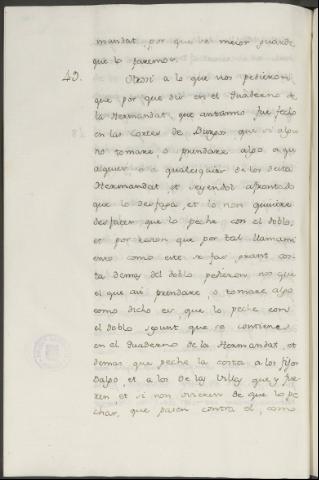 mandat, por que se meior guarde
que lo faremos.
49. Otrossi a lo que nos pedieron
que por que diz en el Quaderno de
la Hermandat, que antanno fue fecho
en las Cortes de Burgos que si algu
no tomare, o prendare algo a qu
alquier o a qualesquier de los desta
Hermandat, et seyendol afrontado
que lo desfaga, et lo non quisiere
desfacer, que lo peche con el doblo,
et por razon que por tal llamami
ento como este se faz grant cos
ta demas del doblo pedieron nos que
el que asi prendare, o tomare algo
como dicho es que lo peche con
el doblo segunt que se contiene
en el Quaderno de la Hermandat, et
demas que peche la costa a los fijos
dalgo, et a los de las Villas que y fue
ren, et si non ovieren de que lo pe
char, que pasen contra el, como